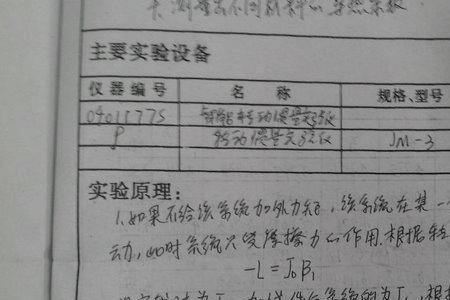 测量出不同材料的导热系数
主要实验设备
仪器编号 名称 规格、型号
04015775 智能转动惯量实验仪
P 转动惯量实验仪 JM-3
实验原理：
1.如果不给该系统加外力矩，该系统在某一
动，此时系统只受摩擦力的作用.根据转
-L=J₀β₁